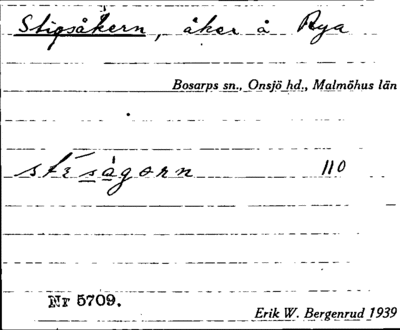 Stigsåkern, åker å Rya
Bosarps sn., Onsjö hd., Malmöhus län
110
Nr 5709.
Erik W. Bergenrud 1939